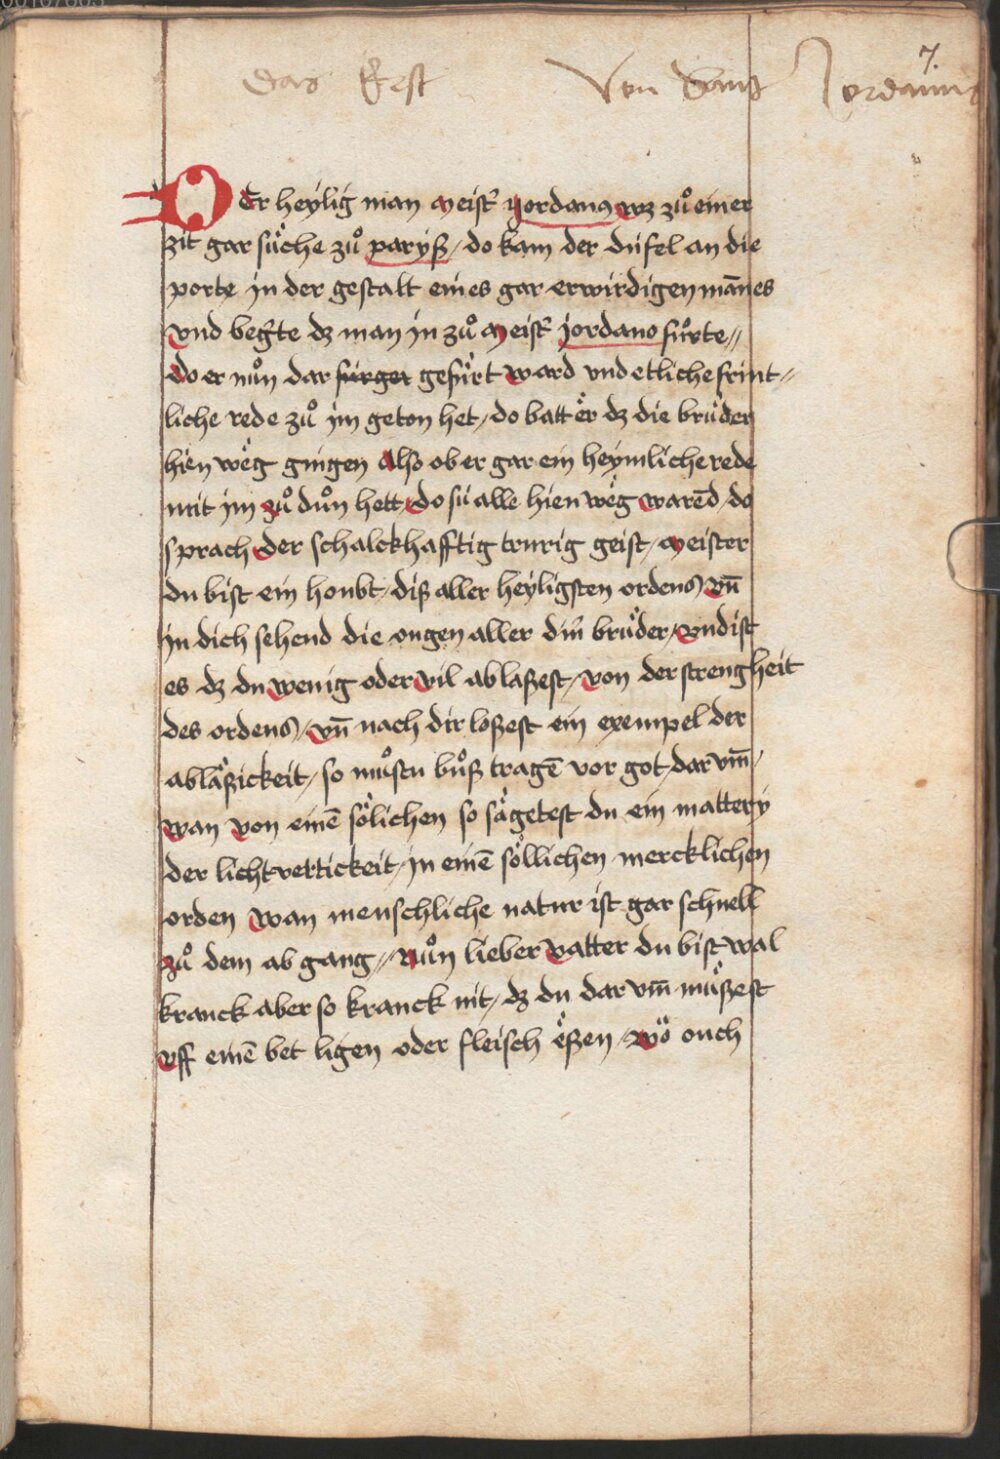 7.
Das Erst Von Sant Jordanus
Der heylig man meist̉ yordanꝰ wz zuͦ einer
zit gar suͤche zuͦ paryß / do kam der dúfel an die
porte in der gestalt eines gar erwirdigen man̄es
vnd beg̉te dz man in zuͦ meist̉ jordano fuͤrte //
do er nuͦn dar fúrger gefuͤrt ward vnd etliche frint //
liche rede zuͦ im geton het / do batt er dz die bruͤder
hien weg gingen Also ob er gar ein heymliche rede
mit im zuͦ duͦn hett / do sú alle hien weg warēd / do
sprach der schalckhafftig trurig geist / meister
du bist ein houbt / diß aller heyligsten ordens vn̄
in dich sehend die ougen aller din̉ bruͤder / vnd ist
es dz du wenig oder vil ablaßest / von der strengheit
des ordens / vn̄ nach dir loßest ein exempel der
abläßickeit / so muͦstu buͦß tragē vor got / dar vm̄ /
wan von einē soͤlichen so säyetest du ein mattery
der lichtvertickeit / in einē soͤllichen mercklichen
orden wan menschliche natur ist gar schnell
zuͦ dem ab gang // Nuͦn lieber vatter du bist wal
kranck aber so kranck nit / dz du dar vm̄ muͤßest
vff einē bet ligen oder fleisch eßen / wo ouch